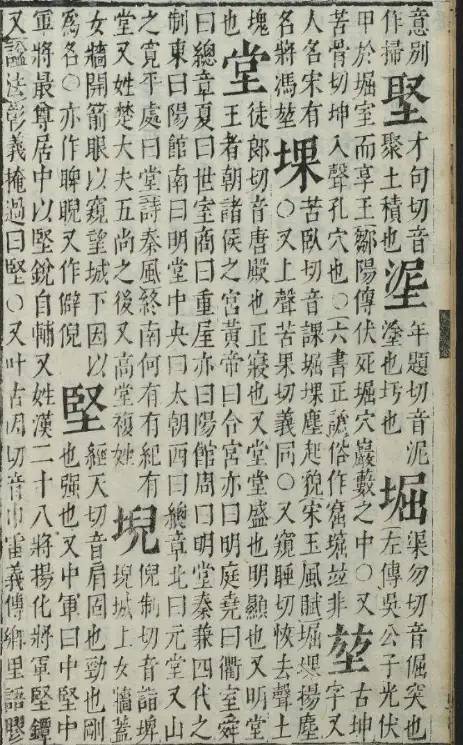 意別
作掃
埾
才句切音
聚土積也
埿
年題切音泥
塗也圬也
堀
渠勿切音倔突也
左傳吳公子光伏
甲於堀室而享王鄒陽傳伏死堀穴巖藪之中〇又
苦骨切坤入聲孔穴也〇六書正譌俗作窟竝非
堃
古坤
字又
人名宋有
名將馮堃
堁
苦臥切音課堀堁塵起貌宋玉風賦堀堁揚塵
〇又上聲苦果切義同〇又窺睡切恢去聲土
塊
堂
徒郎切音唐殿也正寢也又堂堂盛也明顯也又明堂
也
王者朝諸侯之宮黃帝曰合宮亦曰明庭堯曰衢室舜
曰總章夏曰世室商曰重屋亦曰陽館周曰明堂秦兼四代之
制東曰陽館南曰明堂中央曰太朝西曰總章北曰元堂又山
之寬平處曰堂詩秦風終南何有有紀有
堂又姓楚大夫五尚之後又高堂複姓
堄
倪制切音詣埤
堄城上女牆蓋
女牆開箭眼以窺望城下因以
爲名〇亦作睥睨又作僻倪
堅
經天切音肩固也勁也剛
也强也又中軍曰中堅中
軍將最尊居中以堅銳自輔又姓漢二十八將揚化將軍堅鐔
又諡法彰義掩過曰堅〇又叶古因切音巾雷義傳鄉里語膠